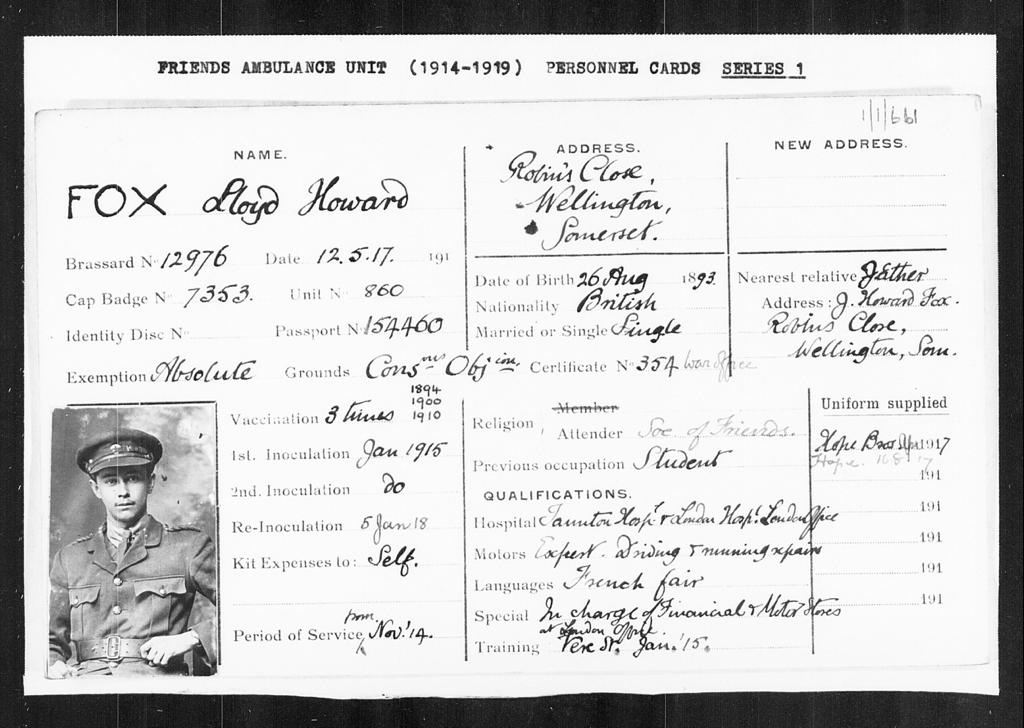 FRIENDS AMBULANCE UNIT (1914-1919) PERSONNEL CARDS SERIES 1
1/1/661
NAME.
FOX Lloyd Howard
Brassard No 12976 Date 12.5.17. 191
Cap Badge No 7353. Unit No 860
Identity Disc No Passport No 154460
ADDRESS.
Robin's Close,
Wellington,
Somerset.
NEW ADDRESS.
Date of Birth 26 Aug 1893.
Nationality British
Married or Single Single
Nearest relative Father
Address: J. Howard Fox.
Robins Close,
Wellington, Som.
Exemption Absolute Grounds Consns Objion Certificate No 354 War office
Vaccination 3 times 1894
1900
1910
1st. Inoculation Jan 1915
2nd. Inoculation do
Re-Inoculation 5 Jan 18
Kit Expenses to: Self.
Period of Service from Nov. '14.
Religion, Member
Attender Soc of Friends.
Previous occupation Student
QUALIFICATIONS.
Hospital Taunton Hospl & London Hospl. London Office
Motors Expert. Driving & running repairs
Languages French fair
Special In charge of Financial & Motor Stores
at London Office.
Training Vere St. Jan. '15.
Uniform supplied
Hope Bros Apl 1917
Hope. 16 8 17
191
191
191
191
191